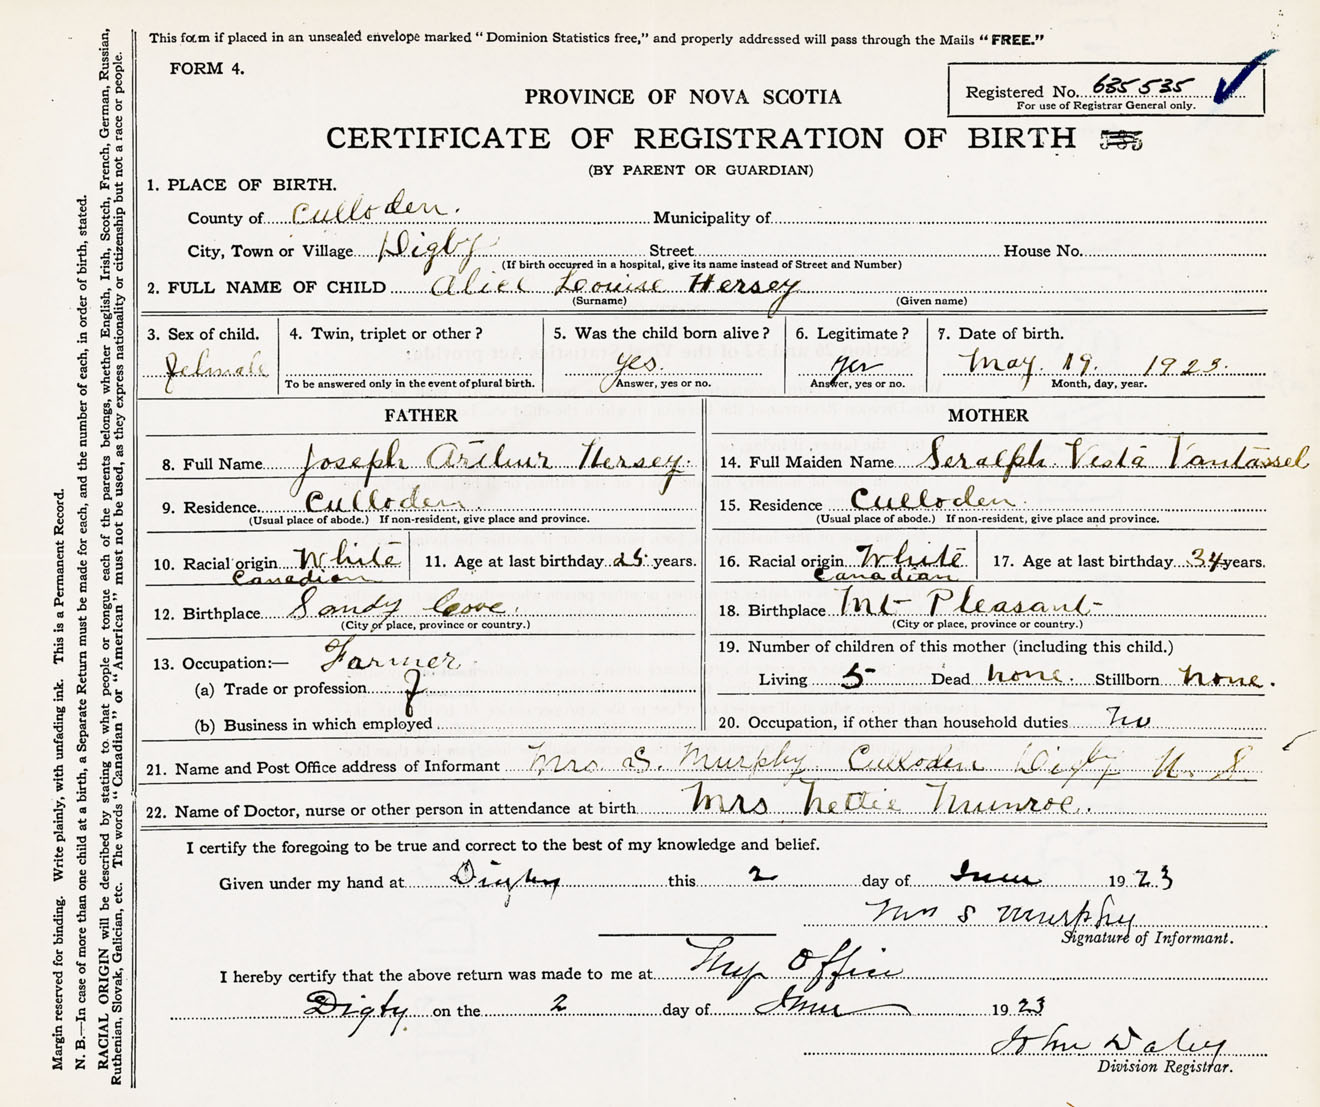 This form if placed in an unsealed envelope marked "Dominion Statistics free," and properly addressed will pass through the Mails "FREE."
FORM 4.
Registered No. 635535
For use of Registrar General only.
PROVINCE OF NOVA SCOTIA
CERTIFICATE OF REGISTRATION OF BIRTH
(BY PARENT OR GUARDIAN)
1. PLACE OF BIRTH.
County of Culloden. Municipality of
City, Town or Village Digby Street House No.
(If birth occurred in a hospital, give its name instead of Street and Number)
2. FULL NAME OF CHILD Alice Louise Hersey
(Surname) (Given name)
3. Sex of child. 4. Twin, triplet or other? 5. Was the child born alive? 6. Legitimate? 7. Date of birth.
Felmale yes. yes May 19. 1923.
To be answered only in the event of plural birth. Answer, yes or no. Answer, yes or no. Month, day, year.
FATHER MOTHER
8. Full Name Joseph Arthur Hersey. 14. Full Maiden Name Seralph Vesta Vantassel
9. Residence Culloden. 15. Residence Culloden.
(Usual place of abode.) If non-resident, give place and province. (Usual place of abode.) If non-resident, give place and province.
10. Racial origin White 11. Age at last birthday 25 years. 16. Racial origin White 17. Age at last birthday 34 years.
Canadian Canadian
12. Birthplace Sandy Cove. 18. Birthplace Mt Pleasant
(City or place, province or country.) (City or place, province or country.)
13. Occupation:— Farmer. 19. Number of children of this mother (including this child.)
(a) Trade or profession Living 5 Dead none. Stillborn none.
(b) Business in which employed 20. Occupation, if other than household duties no
21. Name and Post Office address of Informant Mrs. S. Murphy Culloden Digby N. S.
22. Name of Doctor, nurse or other person in attendance at birth Mrs Nettie Munroe.
I certify the foregoing to be true and correct to the best of my knowledge and belief.
Given under my hand at Digby this 2 day of June 1923
Mrs S Murphy
Signature of Informant.
I hereby certify that the above return was made to me at My Office
Digby on the 2 day of June 1923
John Daley
Division Registrar.
Margin reserved for binding. Write plainly, with unfading ink. This is a Permanent Record.
N. B.—In case of more than one child at a birth, a Separate Return must be made for each, and the number of each, in order of birth, stated.
RACIAL ORIGIN will be described by stating to what people or tongue each of the parents belongs, whether English, Irish, Scotch, French, German, Russian,
Ruthenian, Slovak, Galician, etc. The words "Canadian" or "American" must not be used, as they express nationality or citizenship but not a race or people.